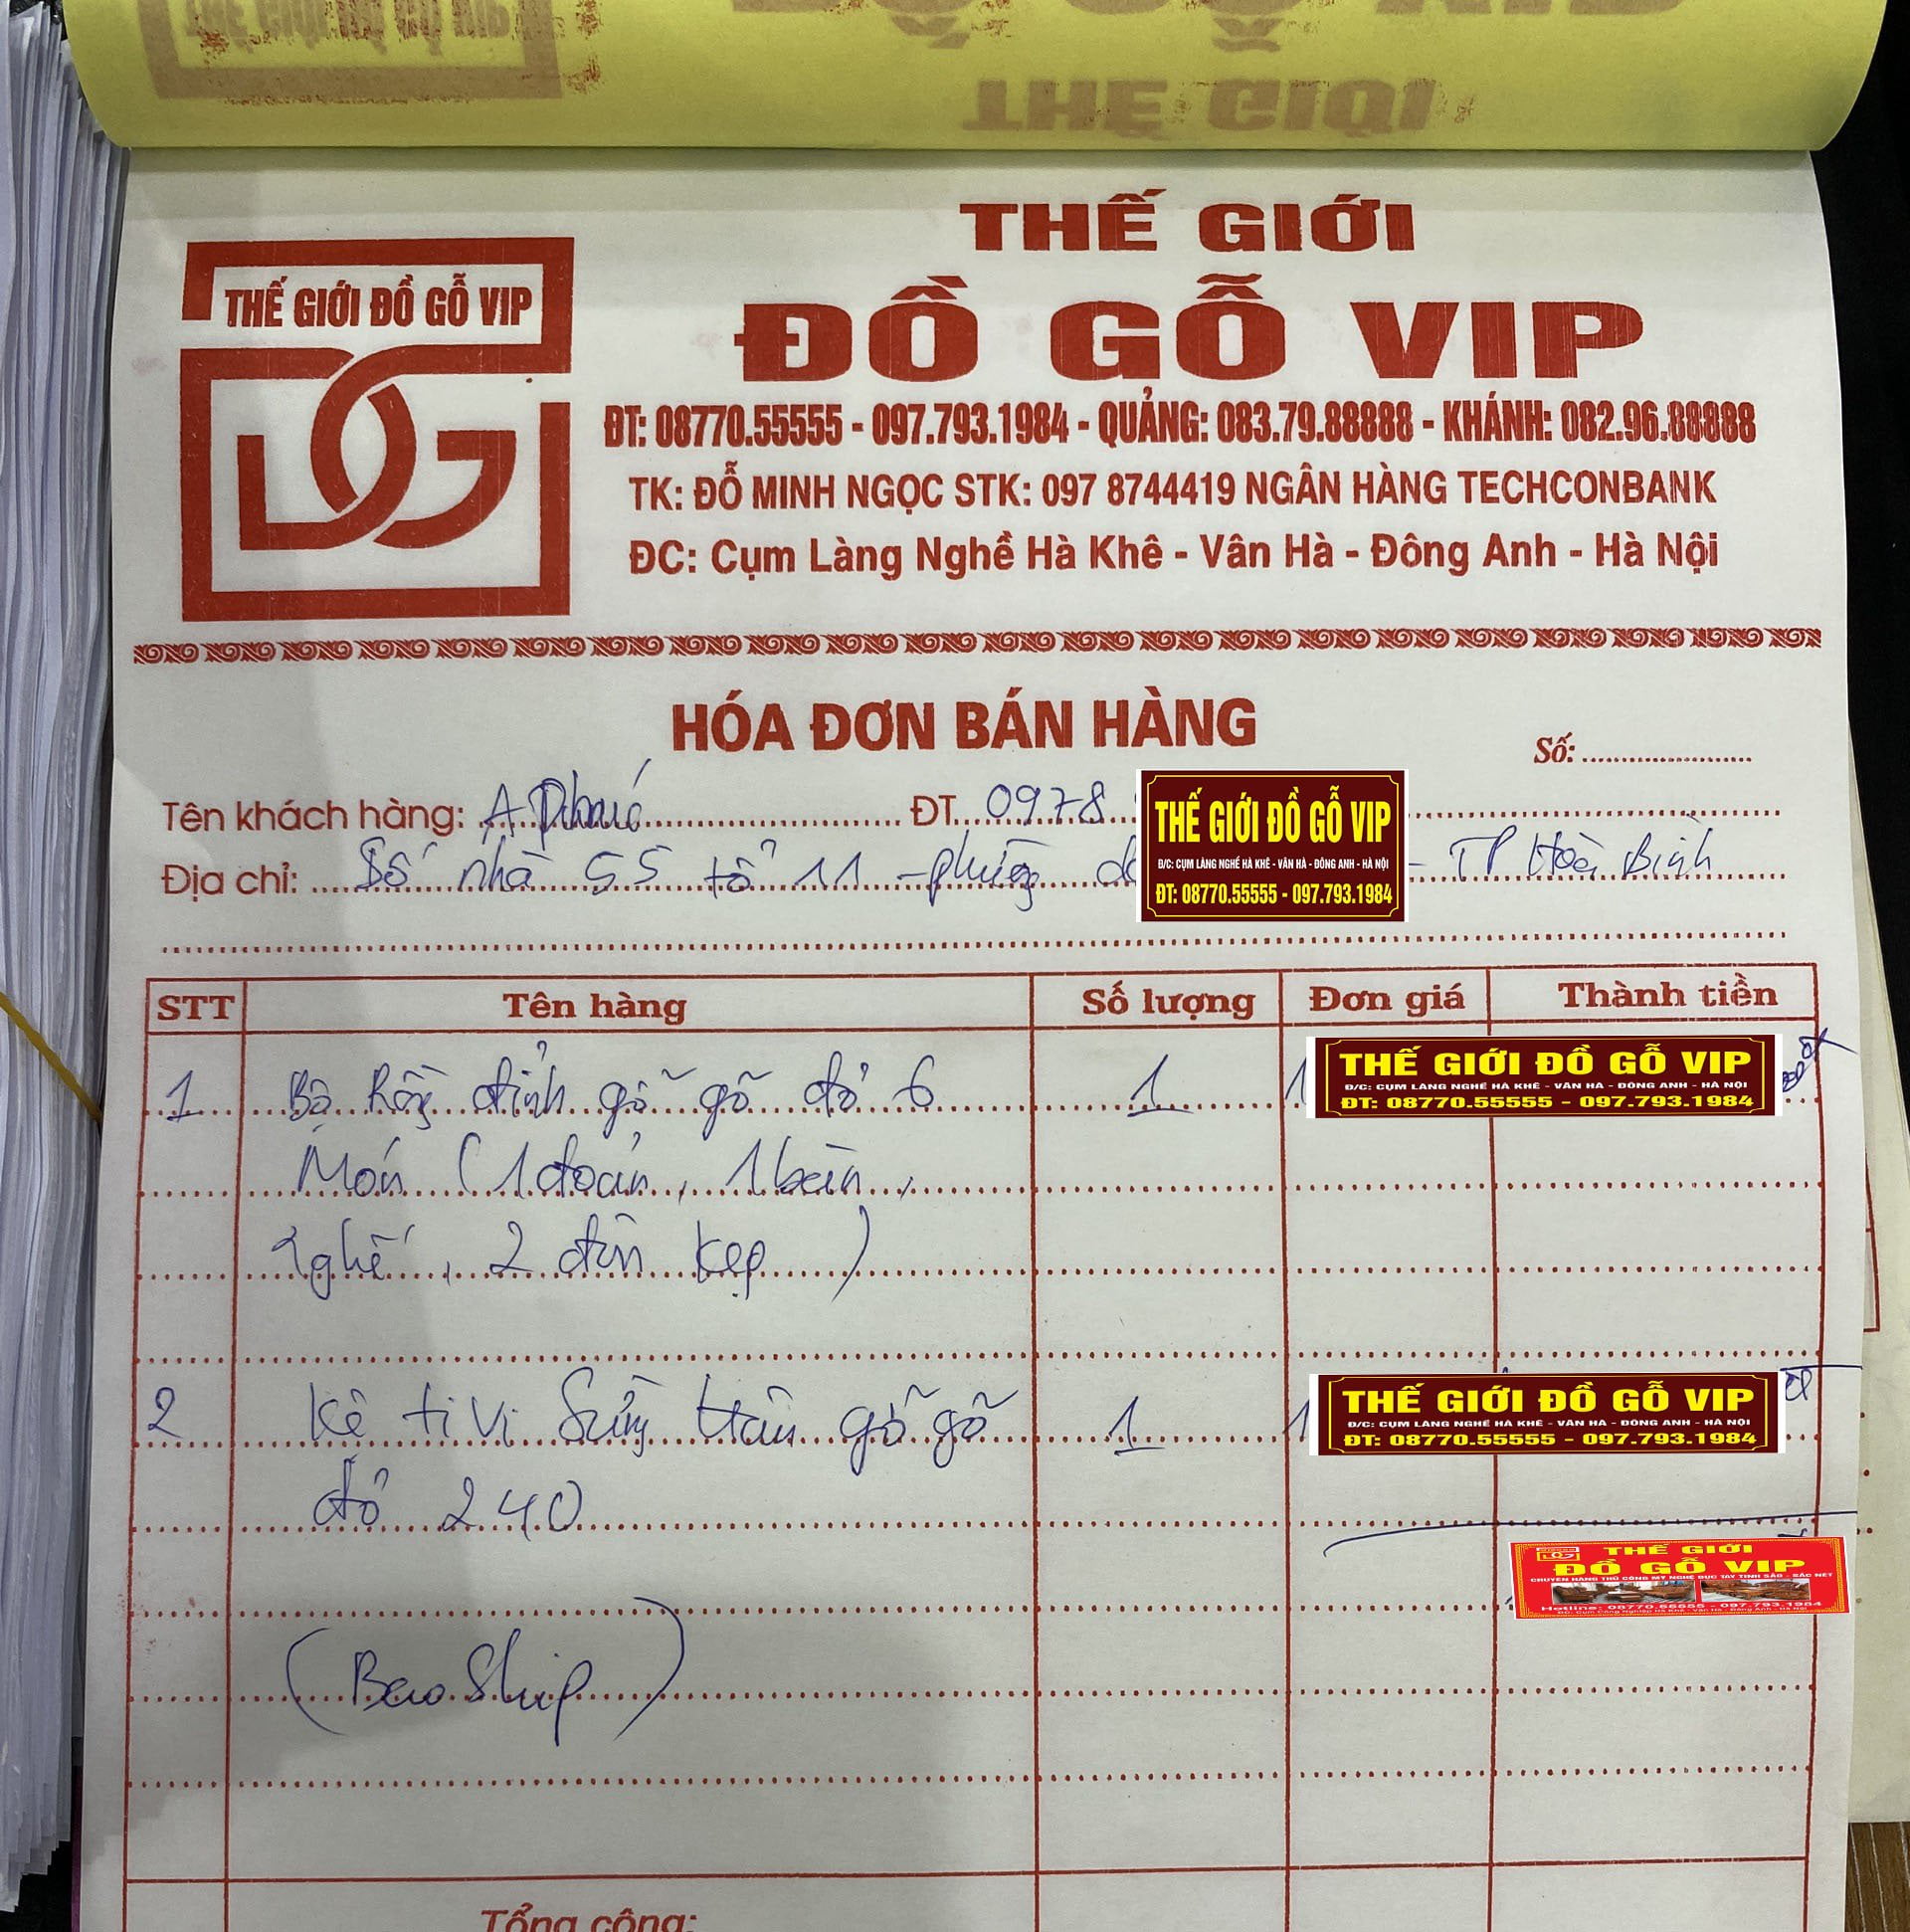 THẾ GIỚI
THẾ GIỚI ĐỒ GỖ VIP
ĐỒ GỖ VIP
ĐT: 08770.55555 - 097.793.1984 - QUẢNG: 083.79.88888 - KHÁNH: 082.96.88888
TK: ĐỖ MINH NGỌC STK: 097 8744419 NGÂN HÀNG TECHCONBANK
ĐC: Cụm Làng Nghề Hà Khê - Vân Hà - Đông Anh - Hà Nội
HÓA ĐƠN BÁN HÀNG
Số:
Tên khách hàng: A Phúc ĐT 0978
Địa chỉ: Số nhà 55 tổ 11 - phường - TP Hòa Bình
THẾ GIỚI ĐỒ GỖ VIP
Đ/C: CỤM LÀNG NGHỀ HÀ KHÊ - VÂN HÀ - ĐÔNG ANH - HÀ NỘI
ĐT: 08770.55555 - 097.793.1984
STT Tên hàng Số lượng Đơn giá Thành tiền
1 Bộ hồng đỉnh gỗ gõ đỏ 6 1 1
THẾ GIỚI ĐỒ GỖ VIP
Đ/C: CỤM LÀNG NGHỀ HÀ KHÊ - VÂN HÀ - ĐÔNG ANH - HÀ NỘI
ĐT: 08770.55555 - 097.793.1984
Món (1 đoản, 1 bàn,
ghế, 2 đôn kẹp)
2 Kệ ti vi Sừng trâu gỗ gõ 1 1
THẾ GIỚI ĐỒ GỖ VIP
Đ/C: CỤM LÀNG NGHỀ HÀ KHÊ - VÂN HÀ - ĐÔNG ANH - HÀ NỘI
ĐT: 08770.55555 - 097.793.1984
đỏ 240
THẾ GIỚI
ĐỒ GỖ VIP
CHUYÊN HÀNG THỦ CÔNG MỸ NGHỆ ĐỤC TAY TINH SẢO - SẮC NÉT
Hotline: 08770.55555 - 097.793.1984
(Bao Ship)
Tổng cộng: